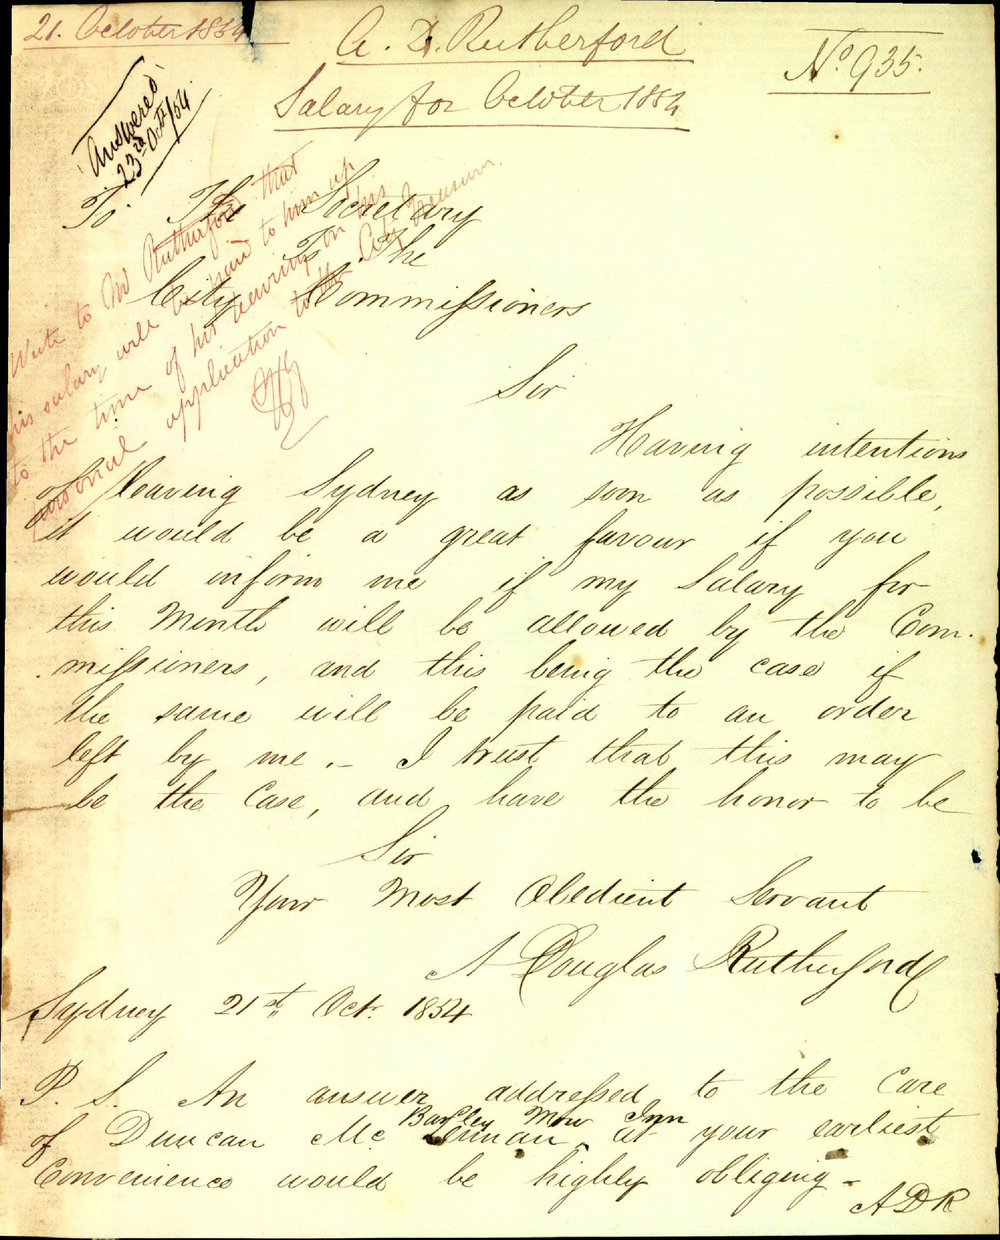 21. October 1854
A. D. Rutherford
No. 935.
Salary for October 1854
Answered
23rd Octr/54
To The Secretary
To The
City Commissioners
Write to Mr Rutherford that
his salary will be paid to him up
to the time of his leaving on his
personal application to the City Treasurer.
Sir
Having intentions
of leaving Sydney as soon as possible,
it would be a great favour if you
would inform me if my Salary for
this Month will be allowed by the Com-
missioners, and this being the case if
the same will be paid to an order
left by me. - I trust that this may
be the Case, and have the honor to be
Sir
Your Most Obedient Servant
A Douglas Rutherford
Sydney 21st Oct. 1854
P. S. An answer addressed to the Care
Barley Mow Inn
of Duncan Mc at your earliest
Convenience would be highly obliging -
ADR